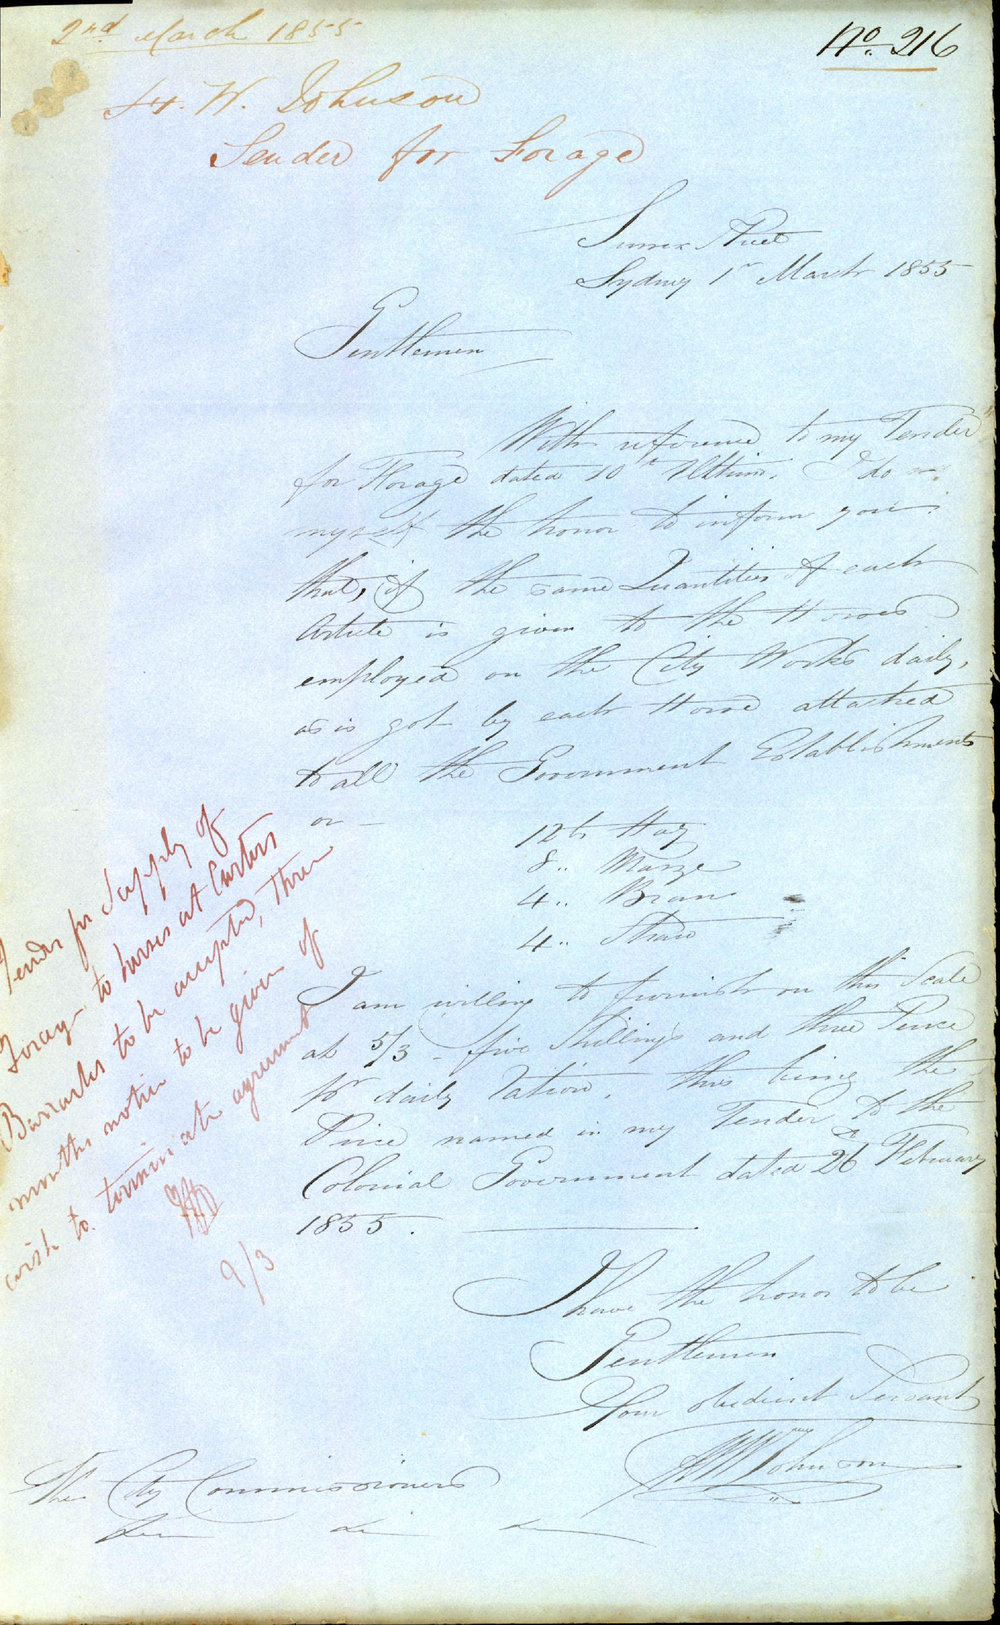 2nd March 1855
No. 216
H. W. Johnson
Tender for Forage
Sussex Street
Sydney 1st March 1855
Gentlemen
With reference to my Tender
for Forage dated 10th Ultimo. I do
myself the honor to inform you
that, if the same Quantities of each
Article is given to the Horses
employed on the City Works daily,
as is got by each Horse attached
to all the Government Establishments
or –
12 lb Hay
8 .. Maize
4 .. Bran
4 .. Straw
I am willing to furnish on this Scale
at 5/3 – five Shillings and three Pence
pr daily Ration, this being the
Price named in my Tender to the
Colonial Government dated 26th February
1855.
I have the honor to be
Gentlemen
Your obedient Servant
Johnson
The City Commissioners
Tender for Supply of
Forage to horses at Carters
Barracks to be accepted, three
months notice to be given of
wish to terminate agreement
9/3